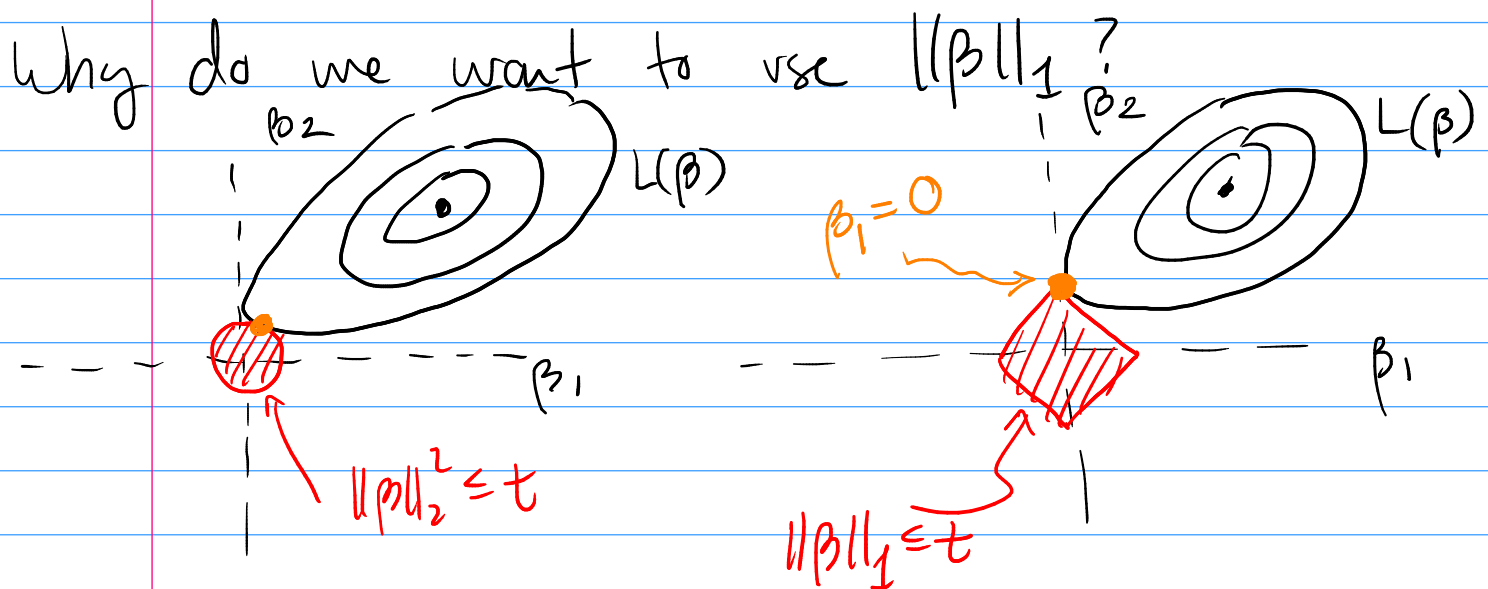 Why do we want to use ||β||₁ ?
β2
L(β)
β1
||β||₂² ≤ t
β2
L(β)
β₁ = 0
β1
||β||₁ ≤ t